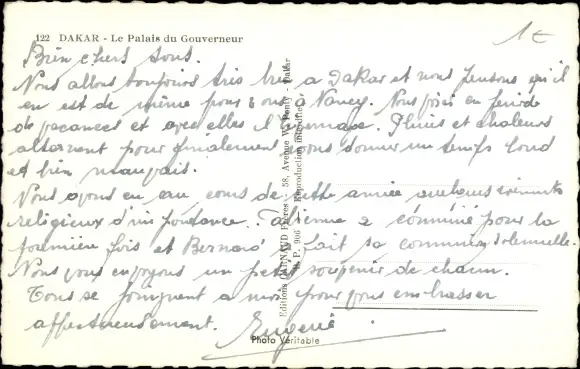 122 DAKAR - Le Palais du Gouverneur
1 €
Bien chers tous.
Nous allons toujours très bien a Dakar et nous pensons qu'il
en est de même pour vous à Nancy. Nous voici en période
de vacances et avec elles l'hivernage. Pluies et chaleurs
alternent pour finalement vous donner un temps lourd
et bien mauvais.
Nous avons eu au cours de cette année quelques événements
religieux d'importance. a communié pour la
première fois et Bernard a fait sa communion solennelle.
Nous vous envoyons un petit souvenir de chacun.
Tous se joignent a moi pour vous embrasser
affectueusement. Eugène
Editions GARNAUD Frères - 58, Avenue W. Ponty - Dakar
B. P. 906 - Reproduction interdite
Photo Véritable